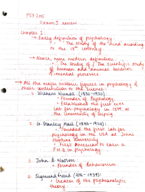 PSY 2012
Exam 1 review
Chapter 1
Early definition of psychology
The study of the mind according
to the 19th century
more modern definition
The study of the
of human and animal behavior
and mental processes
the major historical figures in psychology &
their contribution to the science
1. Wilhelm Wundt (1832-1920)
Founder of Psychology
Established the first ever
lab for psychology in 1879 at
the University of Leipzig
2. G. Stanley Hall (1844-1924)
founded the first lab for
psychology in the USA at Johns
Hopkins University
First American to earn a
P.h.D in psychology
3. John B. Watson
Founder of behaviorism
4. Sigmund Freud (1856-1939)
of the psychoanalytic
theory